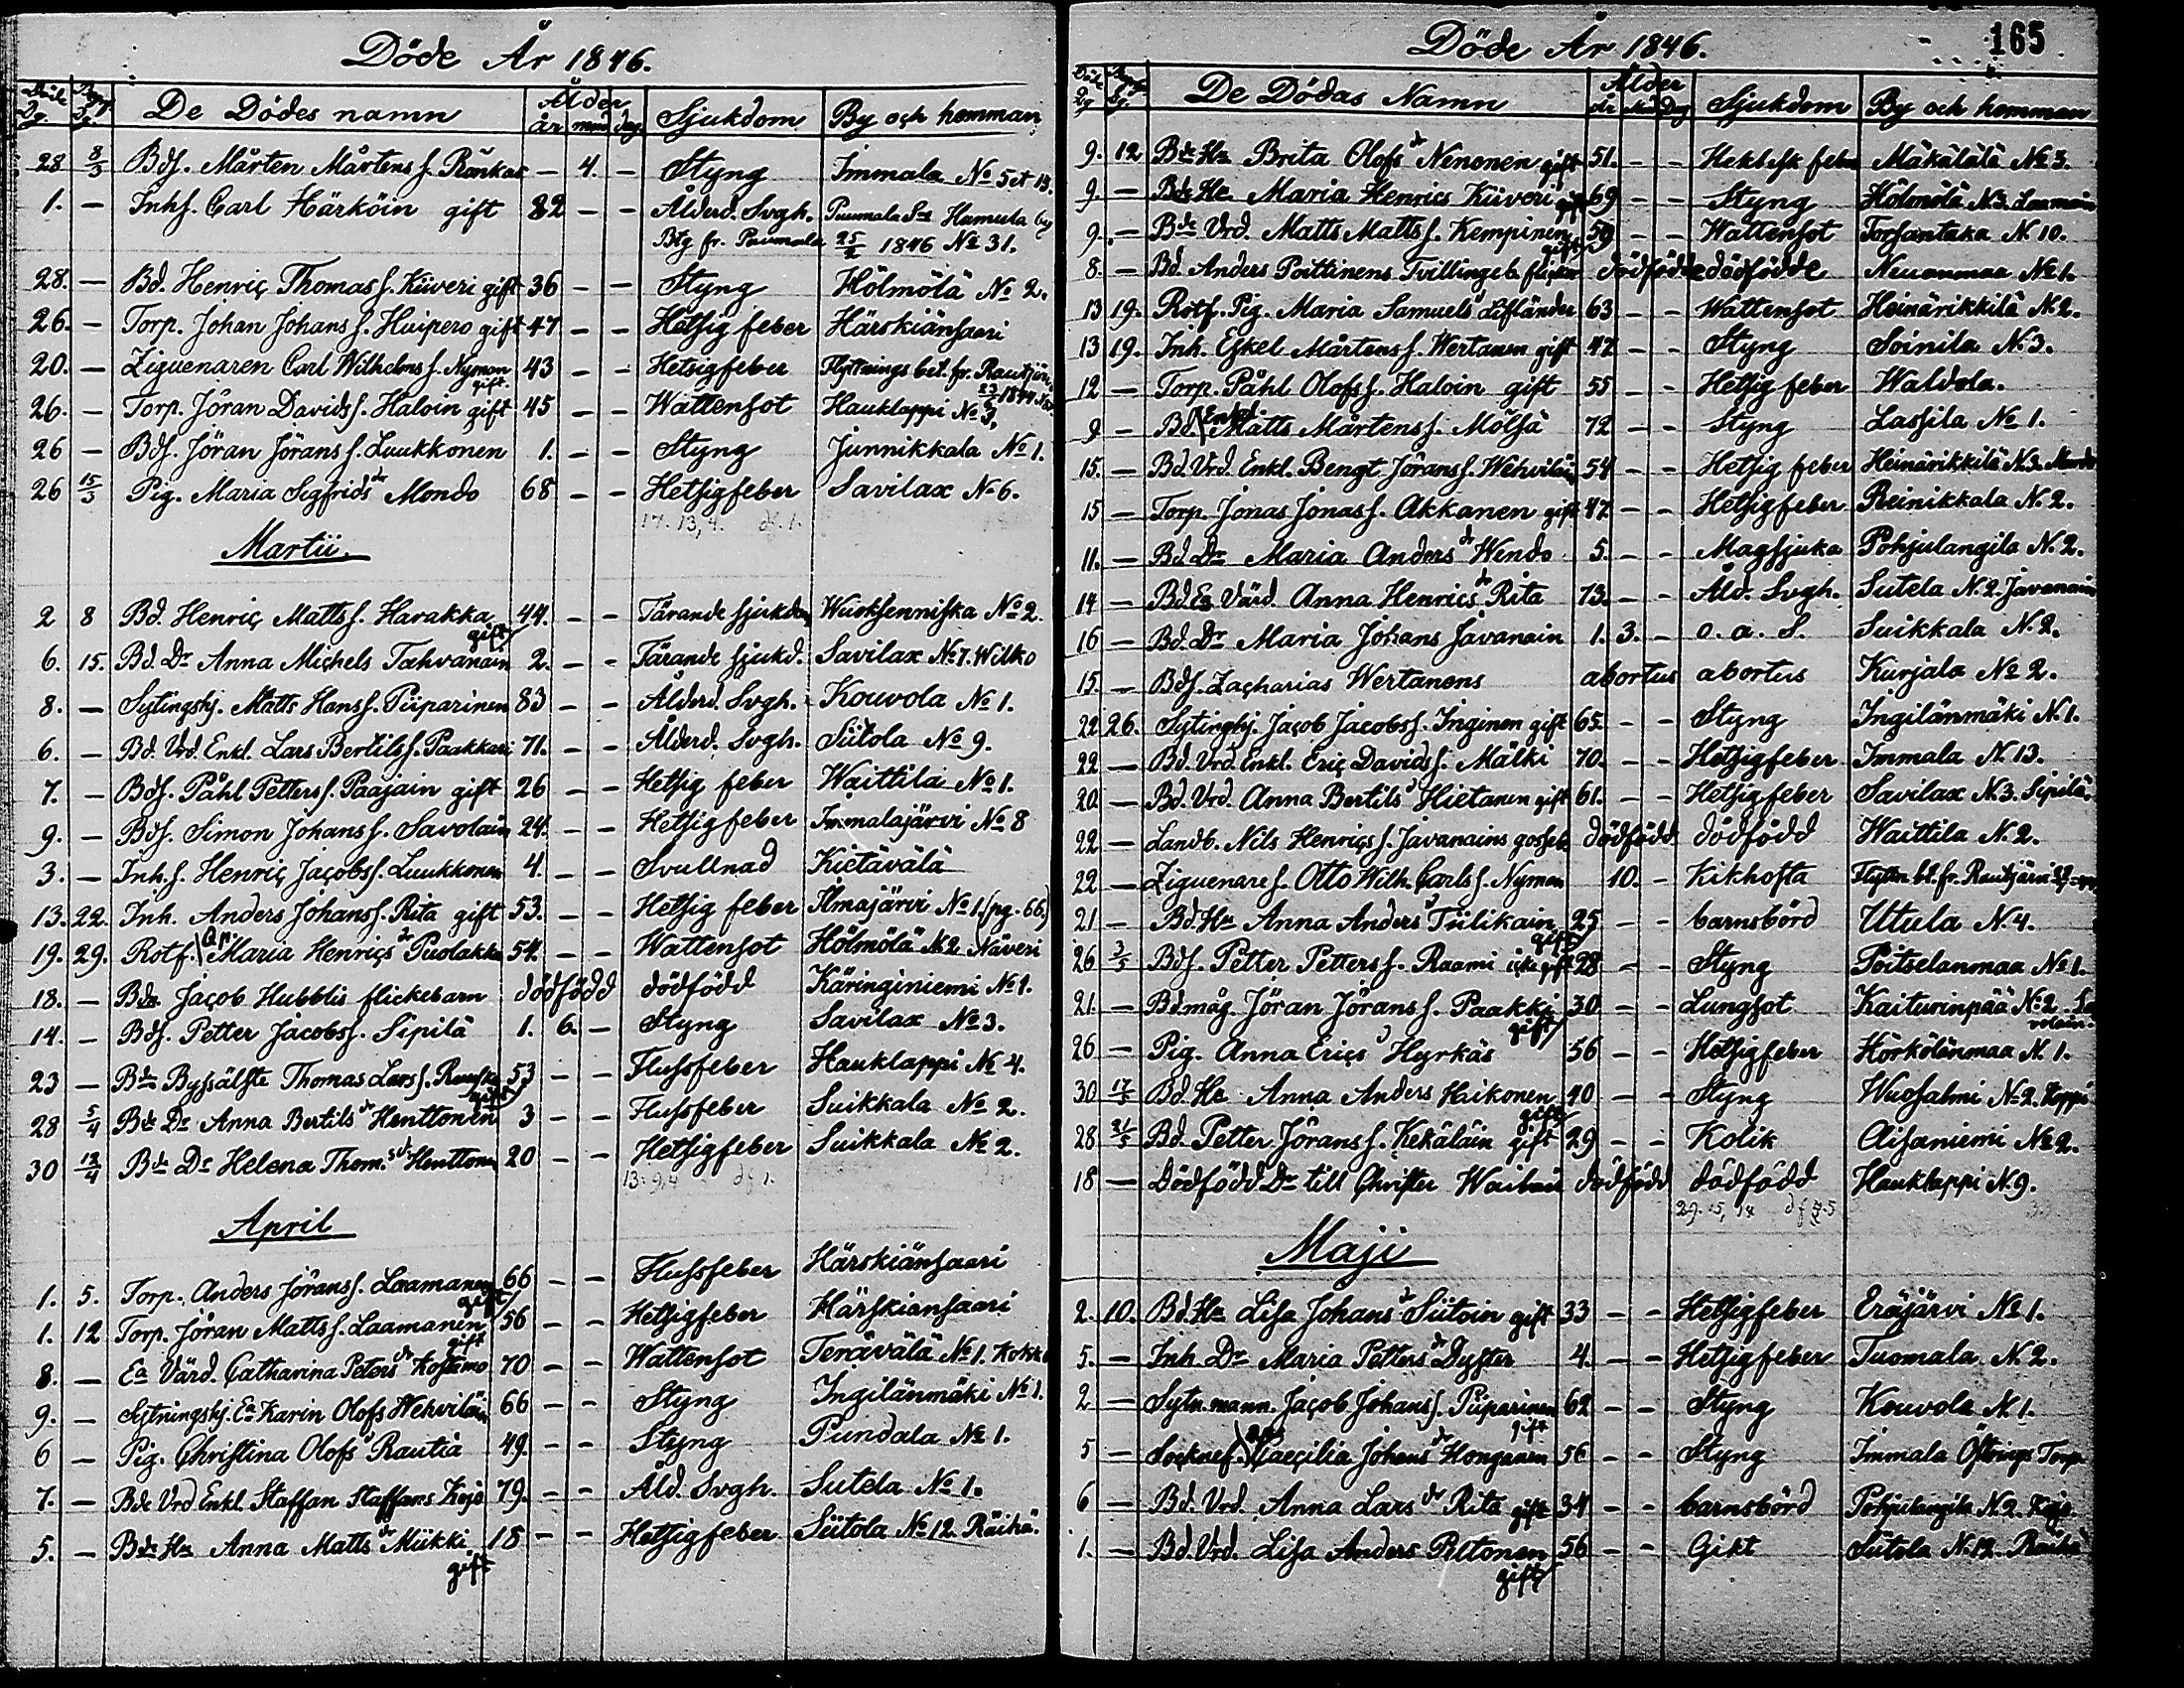 Döde År 1846.
Döde Dg. Begr. Dg. De Dödes namn Ålder år mnd dag Sjukdom By och hemman
28 8/3 Bds. Mårten Mårtens s. Rönkas — 4. — Styng Immala No 5 et 13.
1. — Inhs. Carl Härköin gift 82 — — Ålderd. Svgh. Puumala Sn Hamula by
Btg fr. Puumala 25/2 1846 No 31.
28. — Bd. Henric Thomas s. Kiiveri gift 36 — — Styng Hölmölä No 2.
26. — Torp. Johan Johans s. Huipero gift 47 — — Hetsig feber Härskiänsaari
20. — Ziguenaren Carl Wilhelms s. Nyman gift. 43 — — Hetsigfeber Flyttnings bet. fr. Rautjärvi
26. — Torp. Jöran Davids s. Haloin gift 45 — — Wattensot Hauklappi No 3,
26 — Bds. Jöran Jörans s. Luukkonen 1. — — Styng Junnikkala No 1.
26 15/3 Pig. Maria Sigfrids dr Mondo 68 — — Hetsigfeber Savilax No 6.
17. 13, 4. df. 1.
Martii.
2 8 Bd. Henric Matts s. Harakka gift 44. — — Tärande sjukdom Wuoksenniska No 2.
6. 15. Bd. Dr Anna Michels Tahvanain 2. — — Tärande sjukd. Savilax No 7. Wilko
8. — Sytingshj. Matts Hans s. Piiparinen 83 — — Ålderd. Svgh. Kouvola No 1.
6. — Bd. Vrd. Enkl. Lars Bertils s. Paakkari 71. — — Ålderd. Svgh. Siitola No 9.
7. — Bds. Påhl Petters s. Paajain gift 26 — — Hetsig feber Waittila No 1.
9. — Bds. Simon Johans s. Savolain 24. — — Hetsigfeber Immalajärvi No 8
3. — Inh. s. Henric Jacobs s. Luukkonen 4. — — Svullnad Kietävälä
13. 22. Inh. Anders Johans s. Rita gift 53. — — Hetsig feber Ilmajärvi No 1. (pg. 66.)
19. 29. Rotf. Maria Henrics dr Puolakka 54. — — Wattensot Hölmölä N. 2 Näveri
18. — Bde Jacob Hubblis flickebarn dödfödd dödfödd Käringiniemi No 1.
14. — Bds. Petter Jacobs s. Sipilä 1. 6. — Styng Savilax No 3.
23 — Bde Byssälste Thomas Lars s. gift 53 — — Flussfeber Hauklappi No 4.
28 5/4 Bde Dr Anna Bertils dr Henttonen 3 — — Flussfeber Suikkala No 2.
30 13/4 Bde Dr Helena Thom. dr Henttonen 20 — — Hetsigfeber Suikkala No 2.
13. 9, 4 df 1.
April
1. 5. Torp. Anders Jörans s. Laamanen gift 66 — — Flussfeber Härskiänsaari
1. 12 Torp. Jöran Matts s. Laamanen gift 56 — — Hetsigfeber Härskiänsaari
8. — Ea Värd. Catharina Peters dr Kostamo 70 — — Wattensot Terävälä No 1. Kokk
9. — Sytningshj. Ea Karin Olofs Wehviläin 66 — — Styng Ingilänmäki No 1.
6 — Pig. Christina Olofs dr Rautia 49. — — Styng Pundala No 1.
7. — Bde Vrd Enkl. Staffan Staffans Kojo 79. — — Åld. Svgh. Sutela No 1.
5. — Bde Hu Anna Matts dr Miikki gift 18 — — Hetsigfeber Siitola No 12. Räihä.
165
Döde År 1846.
Döde Dg Begr. Dg. De Dödas Namn Ålder år mnd Dag Sjukdom By och hemman
9. 12 Bde Hu Brita Olofs dr Nenonen gift 51. — — Hektisk feber Mäkälälä No 3.
9. — Bde Hu Maria Henrics Kiiveri gift 69 — — Styng Hölmölä N. 3. Laamain
9. — Bde Vrd. Matts Matts s. Kempinen gift 59 — — Wattensot Torsantaka N. 10.
8. — Bd. Anders Poittinens Tvillingeb. flickor dödfödde dödfödde Neuanmaa No 1.
13 19. Rotf. Pig. Maria Samuels dr Lifländer 63 — — Wattensot Heinärikkilä N. 2.
13 19. Inh. Eskel Mårtens s. Wertanen gift 47 — — Styng Soinila N. 3.
12 — Torp. Påhl Olofs s. Haloin gift 55 — — Hetsig feber Waldola.
9 — Bd. Enkl. Matts Mårtens s. Mölsä 72 — — Styng Lassila No 1.
15. — Bd. Vrd. Enkl. Bengt Jörans s. Wehviläin 54 — — Hetsig feber Heinärikkilä N. 3.
15 — Torp. Jonas Jonas s. Akkanen gift 47 — — Hetsigfeber Reinikkala N. 2.
11. — Bd. Dr Maria Anders dr Wendo 5. — — Magsjuka Pohjalangila N. 2.
14 — Bd. Ea Värd. Anna Henrics dr Rita 73. — — Åld. Svgh. Sutela N. 2. Javanain
16 — Bd. Dr Maria Johans Javanain 1. 3. — o. a. S. Suikkala N. 2.
15. — Bds. Zacharias Wertanens abortus abortus Kurjala No 2.
22 26. Sytinghj. Jacob Jacobs s. Inginen gift 65. — — Styng Ingilänmäki N. 1.
22 — Bd. Vrd. Enkl. Eric Davids s. Mälki 70. — — Hetsigfeber Immala N. 13.
20. — Bd. Vrd. Anna Bertils dr Hietanen gift 61. — — Hetsigfeber Savilax N. 3. Sipilä.
22 — Landb. Nils Henrics s. Javanains gosseb. dödfödd dödfödd Waittila N. 2.
22 — Ziguenare s. Otto Wilh. Carls s. Nyman 10. — Kikhosta Flyttn. bt. fr. Rautjärvi
21 — Bd. Hu Anna Anders dr Tiilikain gift 25 — — barnsbörd Uttula N. 4.
26 3/5 Bds. Petter Petters s. Raami icke gift 28 — — Styng Poitselanmaa No 1.
21. — Bd. måg. Jöran Jörans s. Paakki gift 30 — — Lungsot Kaiturinpää No 2. Savolain.
26 — Pig. Anna Erics dr Hyrkäs 56 — — Hetsigfeber Hörkölänmaa N. 1.
30 17/5 Bd. Hu Anna Anders Haikonen gift 40 — — Styng Wuosalmi No 2. Hoppi
28 31/5 Bd. Petter Jörans s. Kekäläin gift 29 — — Kolik Aisaniemi No 2.
18 — Dödfödd Dr till Christer dödfödd dödfödd Hauklappi N. 9.
29. 15, 14 df
Maji
2. 10. Bd. Hu Lisa Johans dr Siitoin gift 33 — — Hetsigfeber Eräjärvi No 1.
5. — Inh. Dr Maria Petters dr Dyster 4. — — Hetsigfeber Tuomala N. 2.
2 — Sytn. mann. Jacob Johans s. Piiparinen gift 62 — — Styng Kouvola N. 1.
5 — Socknef. Caecilia Johans dr Honganen 56 — — Styng Immala Torp.
6 — Bd. Vrd. Anna Lars dr Rita gift 34 — — barnsbörd Pohjalangila N. 2. Kojo.
1. — Bd. Vrd. Lisa Anders Peltonen gift 56 — — Gikt Siitola N. 12. Räihä